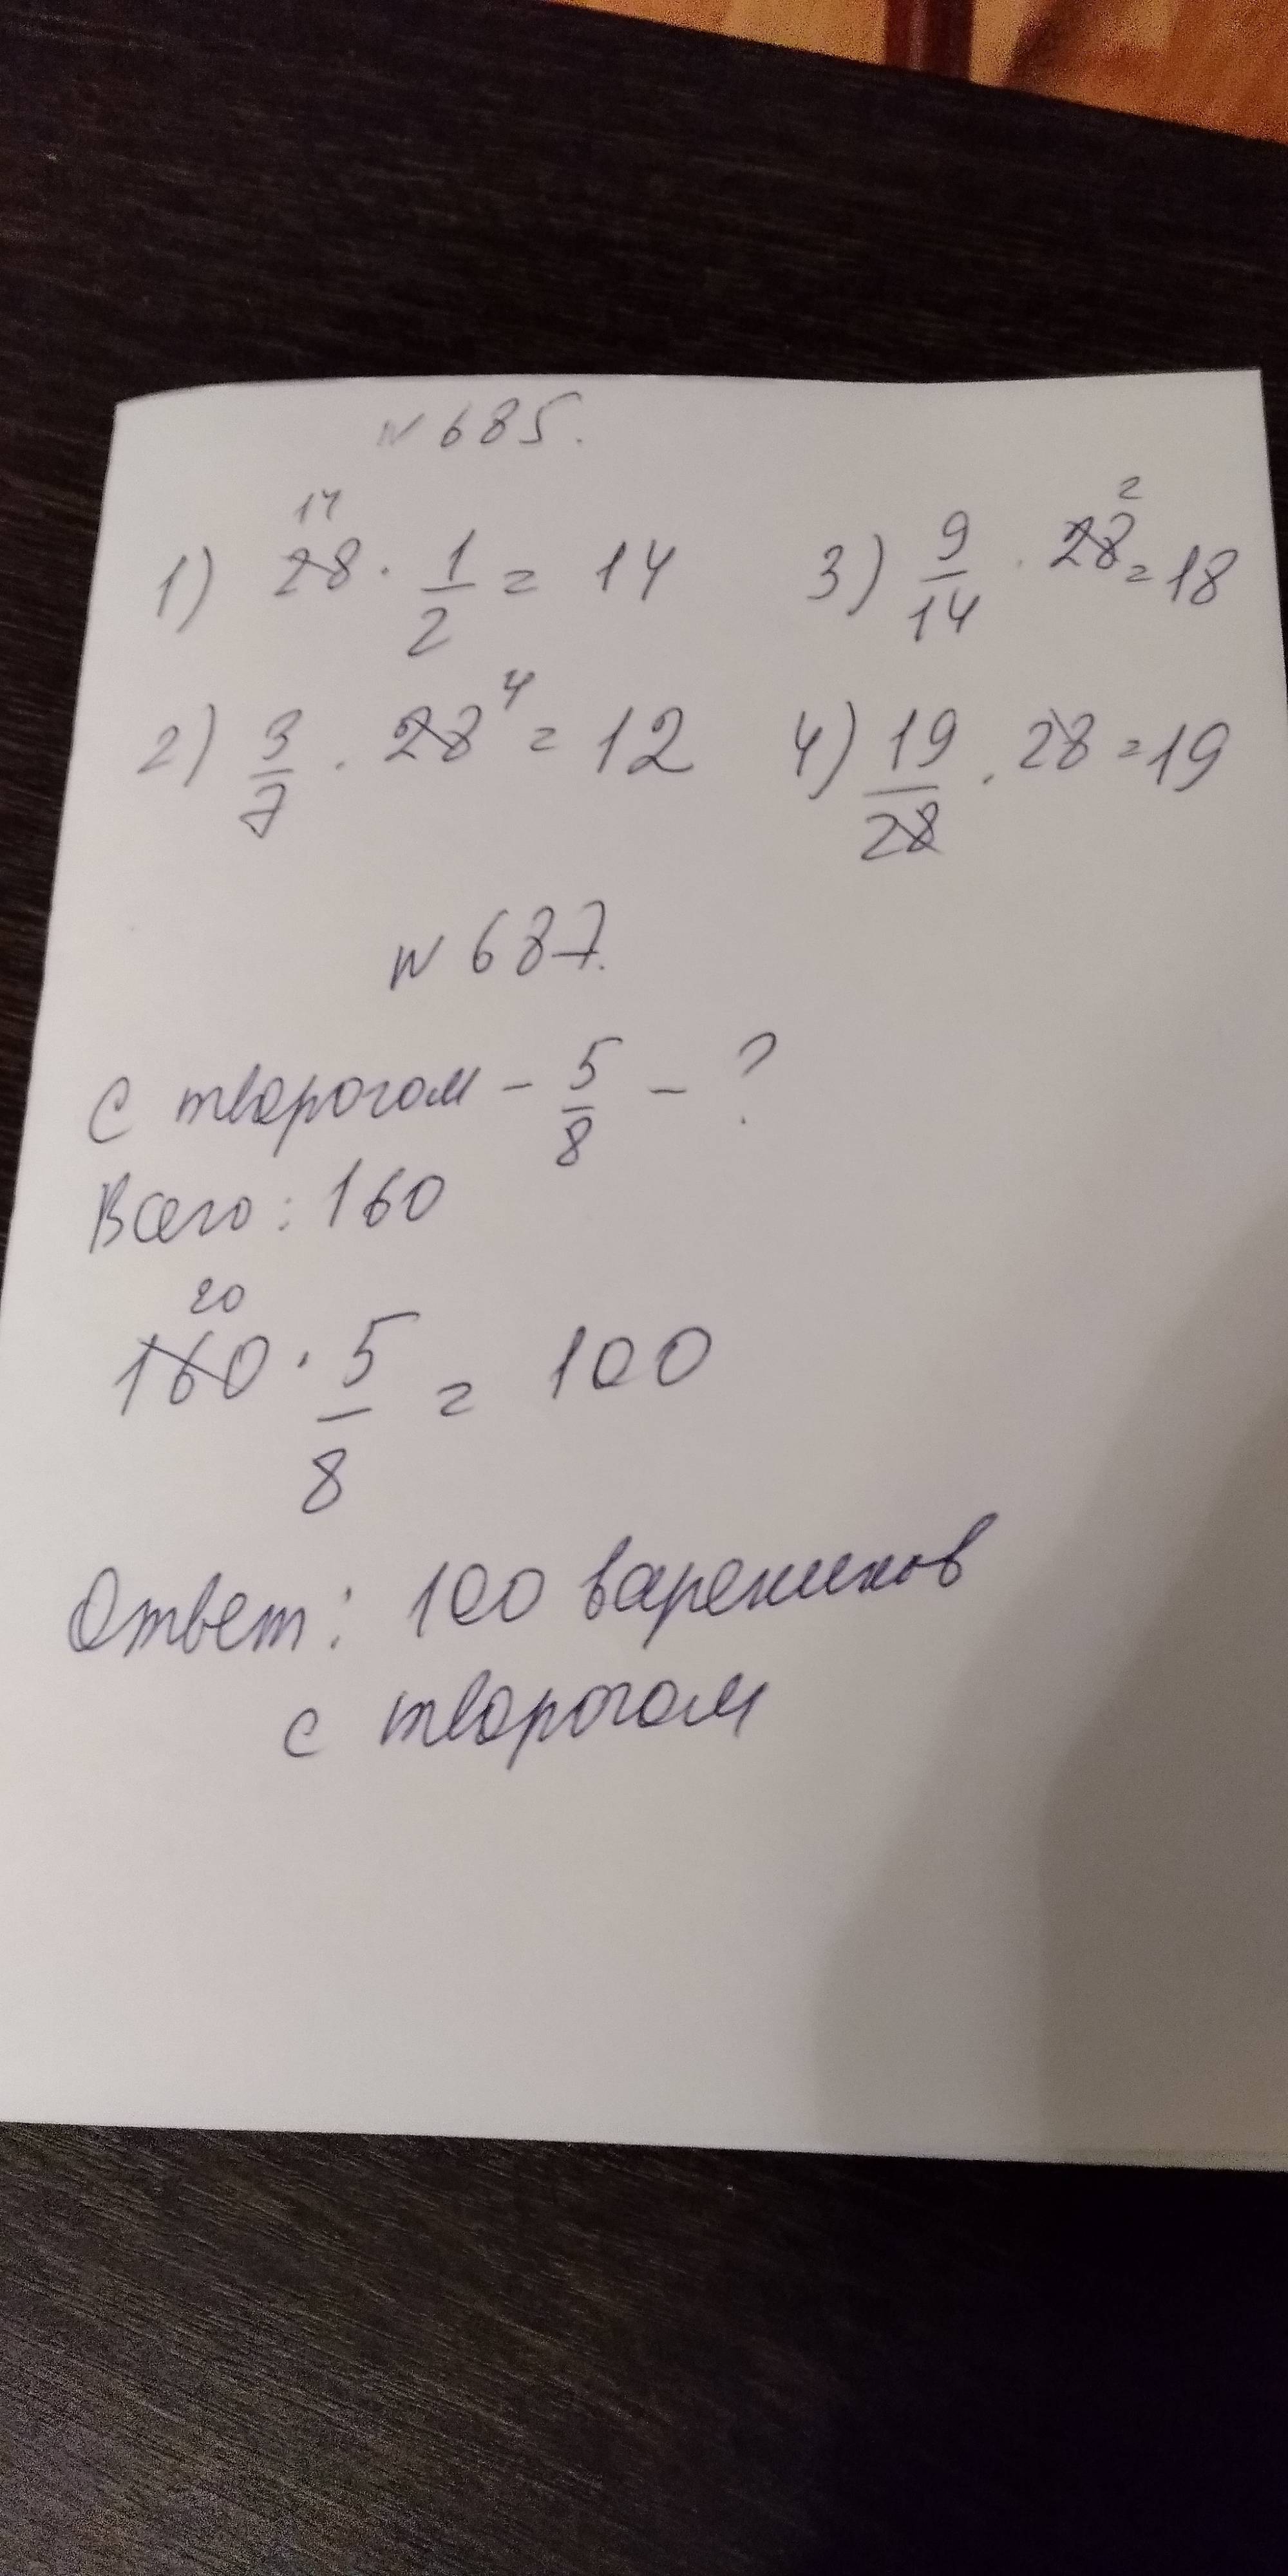 № 685.
14
1) 28 · 1/2 = 14
2
3) 9/14 · 28 = 18
4
2) 3/7 · 28 = 12
4) 19/28 · 28 = 19
№ 687.
С творогом – 5/8 – ?
Всего: 160
20
160 · 5/8 = 100
Ответ: 100 вареников
с творогом